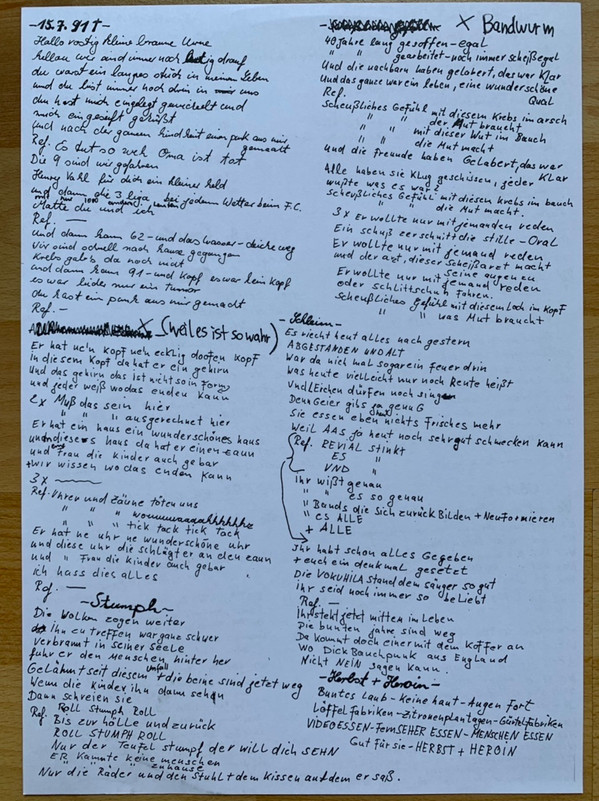 -15.7.91†-
Hallo rostig kleine braune Urne
du warst ein langes stück in meinem Leben
und du bist immer noch drin in uns
du hast mich eingelegt gewickelt und
mich eingeseift geküßt
und nach der ganzen Kindheit einen punk aus mir gemacht
Ref. Es tut so weh Oma ist tot
Die 9 sind wir gefahren
Henry Vahl für dich ein kleiner held
und dann die 3 liga bei jedem Wetter beim F.C.
Matte du und ich
Ref. —
und dann kam 62 - und das Wasser - deiche weg
wir sind schnell nach hause gegangen
Krebs gab's da noch nicht
und dann kam 91 - und Kopf es war kein kopf
es war leider nur ein Tumor
du hast ein punk aus mir gemacht
Ref. -
X - (weil es ist so wahr)
Er hat ne'n Kopf neh ecklig doofen Kopf
In diesem Kopf da hat er ein gehirn
Und das gehirn das ist nicht so in Form
und jeder weiß wo das enden kann
2x Muß das sein hier
" " ausgerechnet hier
Er hat ein haus ein wunderschönes haus
und dieses haus da hat er einen zaun
und Frau die kinder auch gebar
+ wir wissen wo das enden kann
3x ~
Ref. Uhren und Zäune töten uns
" " "
" " " tick tack tick tack
Er hat ne uhr ne wunderschöne uhr
und diese uhr die schlägt er an den zaun
und " Frau die kinder auch gebar
ich hass dies alles
Ref. —
- Stumph -
Die Wolken zogen weiter
ihn zu treffen war ganz schwer
Verbrannt in seiner seele
fuhr er den Menschen hinter her
Gelähmt seit diesem unfall + die beine sind jetzt weg
Wenn die Kinder ihn dann sehn
Dann schreien sie
Roll Stumph Roll
Ref. Bis zur hölle und zurück
ROLL STUMPH ROLL
Nur der Teufel stumpf der will dich SEHN
ER kannte keine menschen
" " " zuhause
Nur die "Räder" und den Stuhl + dem Kissen auf dem er saß.
X Bandwurm
40 Jahre lang gesoffen - egal
" " gearbeitet - noch immer scheißegal
Und die nachbarn haben gelabert, das war klar
Und das ganze war ein leben, eine wunderschöne Qual
Ref.
Scheußliches Gefühl mit diesem Krebs im arsch
" " der Mut braucht
" " mit dieser Wut im Bauch
" " die Mut macht
und die Freunde haben Gelabert, das war klar
Alle haben sie Klug geschissen, jeder
wußte was es war?
Scheußliches Gefühl mit diesen krebs im bauch
" " die Mut macht.
3x Er wollte nur mit jemanden reden
Ein schuß zerschnitt die stille - Oral
Er wollte nur mit jemand reden
und der arzt, dieser Scheißarzt macht seine augen zu
Er wollte nur mit jemand reden
oder schlittschuh Fahren.
Scheußliches Gefühl mit diesem Loch im Kopf
" " was Mut braucht
- Schleim -
Es riecht heut alles nach gestern
ABGESTANDEN UND ALT
War da nich mal sogar ein feuer drin
Was heute vielleicht nur noch Reute heißt
Und Leichen dürfen noch singen
Denn Geier gibs ja genuG
Sie essen eben nichts Frisches mehr
Weil AAS ja heut noch sehr gut schmecken kann
Ref. REVIAL stinkt
ES "
UND "
Ihr wißt genau
" " es so genau
" Bands die sich zurück Bilden + Neu Formieren
" es ALLE
+ ALLE
Ihr habt schon alles Gegeben
+ euch ein denkmal gesetzt
Die VOKUHILA stand dem sänger so gut
ihr seid noch immer so beliebt
Ref. -
Ihr steht jetzt mitten im Leben
Die bunten jahre sind weg
Da kommt doch einer mit dem Koffer an
Wo Dick Bauch punk aus England
Nicht NEIN sagen kann.
- Herbst + Heroin -
Buntes Laub - Keine haut - Augen fort
Löffel fabriken - Zitronenplantagen - Gürtelfabriken
VIDEO ESSEN - Fernseher ESSEN - MENSCHEN ESSEN
Gut für sie - HERBST + HEROIN